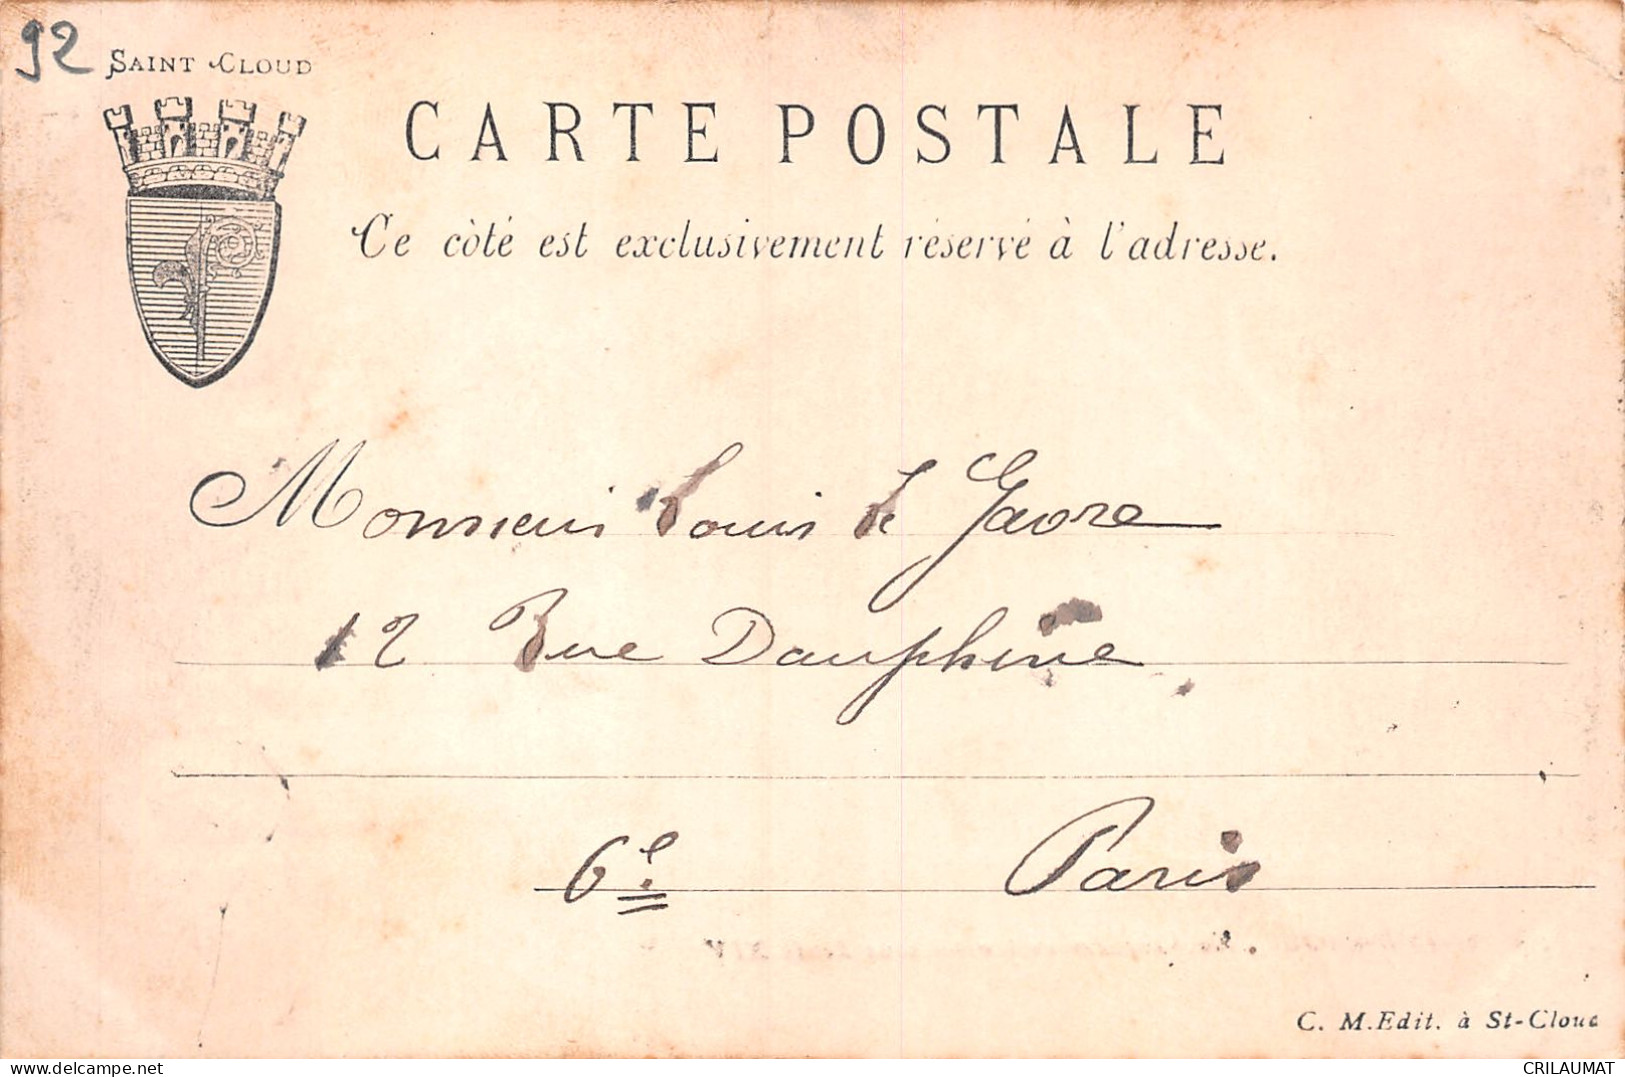 92
SAINT CLOUD
CARTE POSTALE
Ce côté est exclusivement réservé à l'adresse.
Monsieur Louis de Gavre
12 Rue Dauphine
6e. Paris
C. M. Edit. à St-Cloud
CRILAUMAT